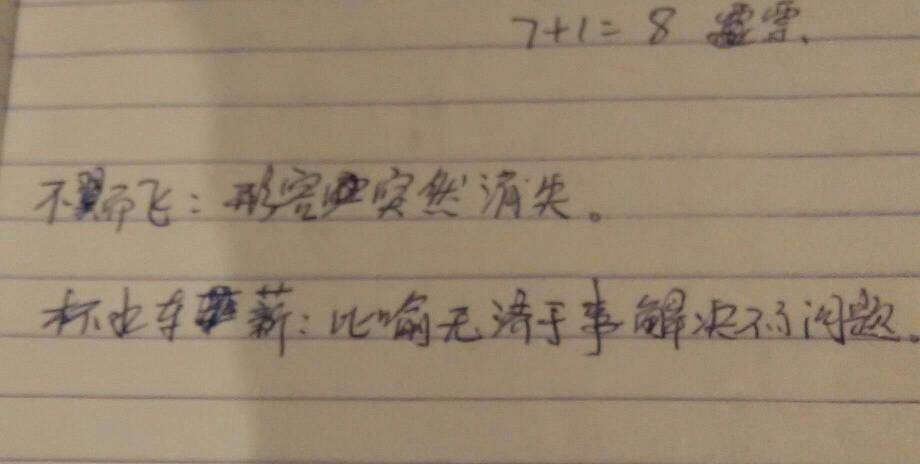 7+1=8 雪.
不翼而飞：形容突然消失。
杯水车薪：比喻无济于事解决不了问题。